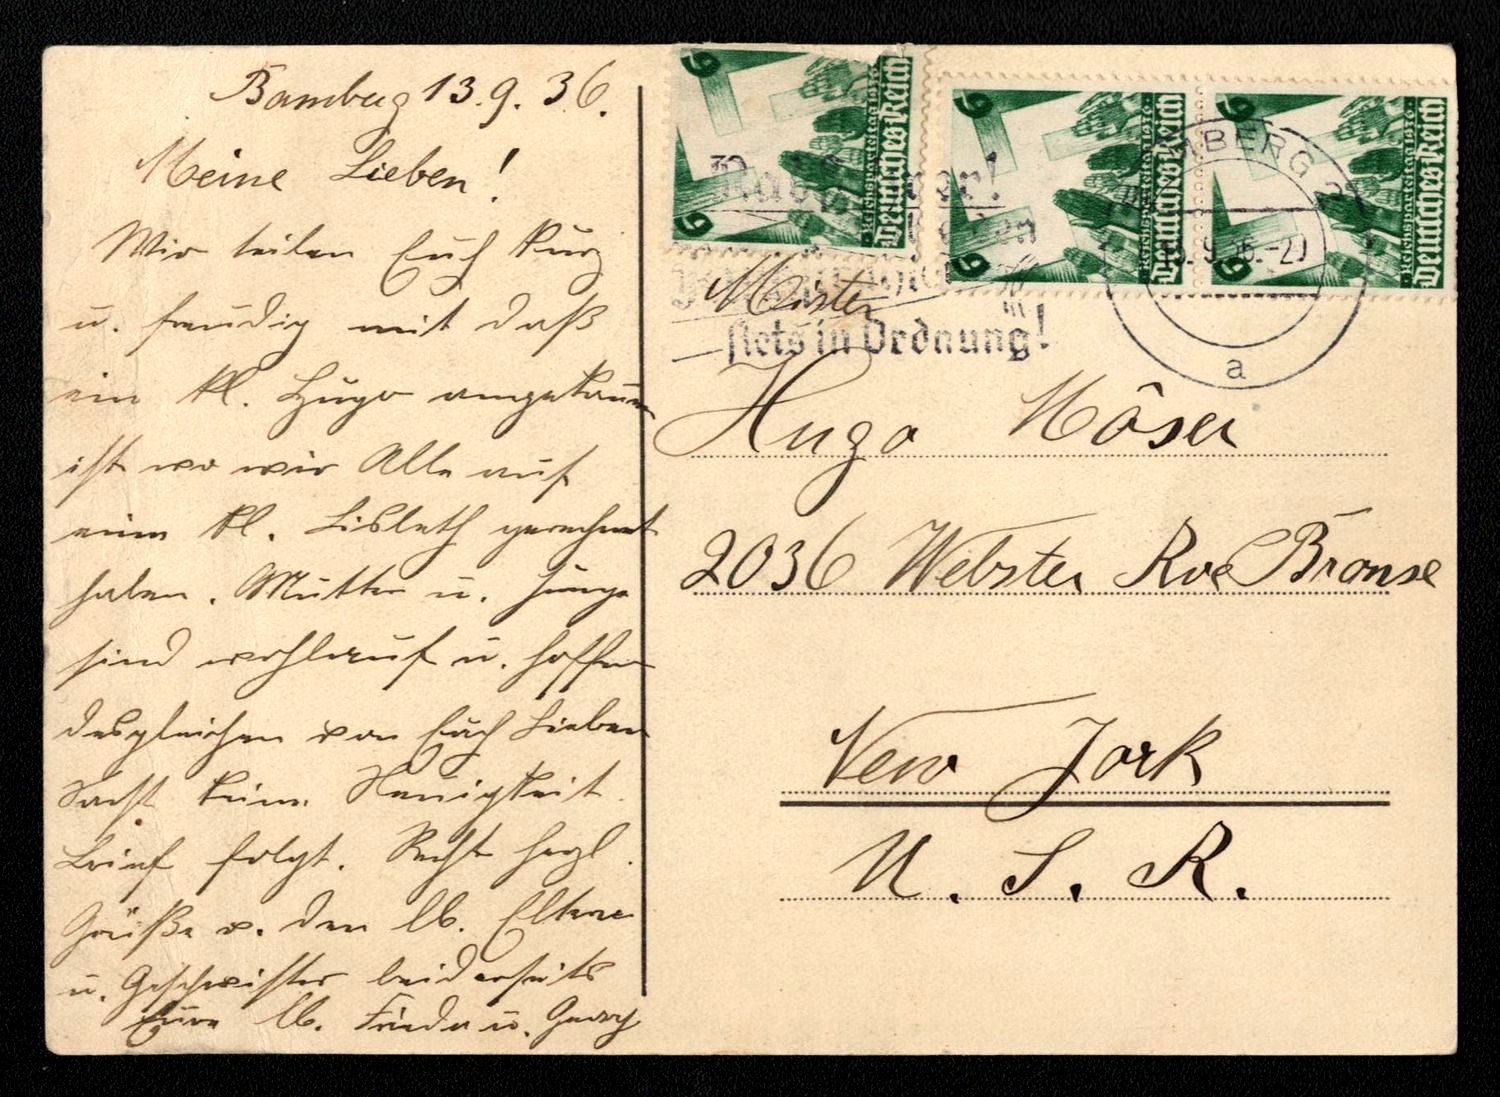 Bamberg 13.9.36.
Meine Lieben!
Wir teilen Euch kurz
u. freudig mit daß
ein kl. Hugo angekommen
ist wo wir Alle auf
eine kl. Lisbeth gerechnet
haben. Mutter u. Junge
sind wohlauf u. hoffen
desgleichen von Euch Lieben
Sonst keine Neuigkeit.
Brief folgt. Recht herzl.
Grüße v. den lb. Eltern
u. Geschwister beiderseits
Eure lb. Frieda u. Georg
6
6
Reichsparteitag 1936
Deutsches Reich
6
6
Reichsparteitag 1936
Deutsches Reich
6
6
Reichsparteitag 1936
Deutsches Reich
BAMBERG 2
13.9.36.-20
a
stets in Ordnung!
Mister
Hugo Möser
2036 Webster Ave Bronse
New York
U. S. A.